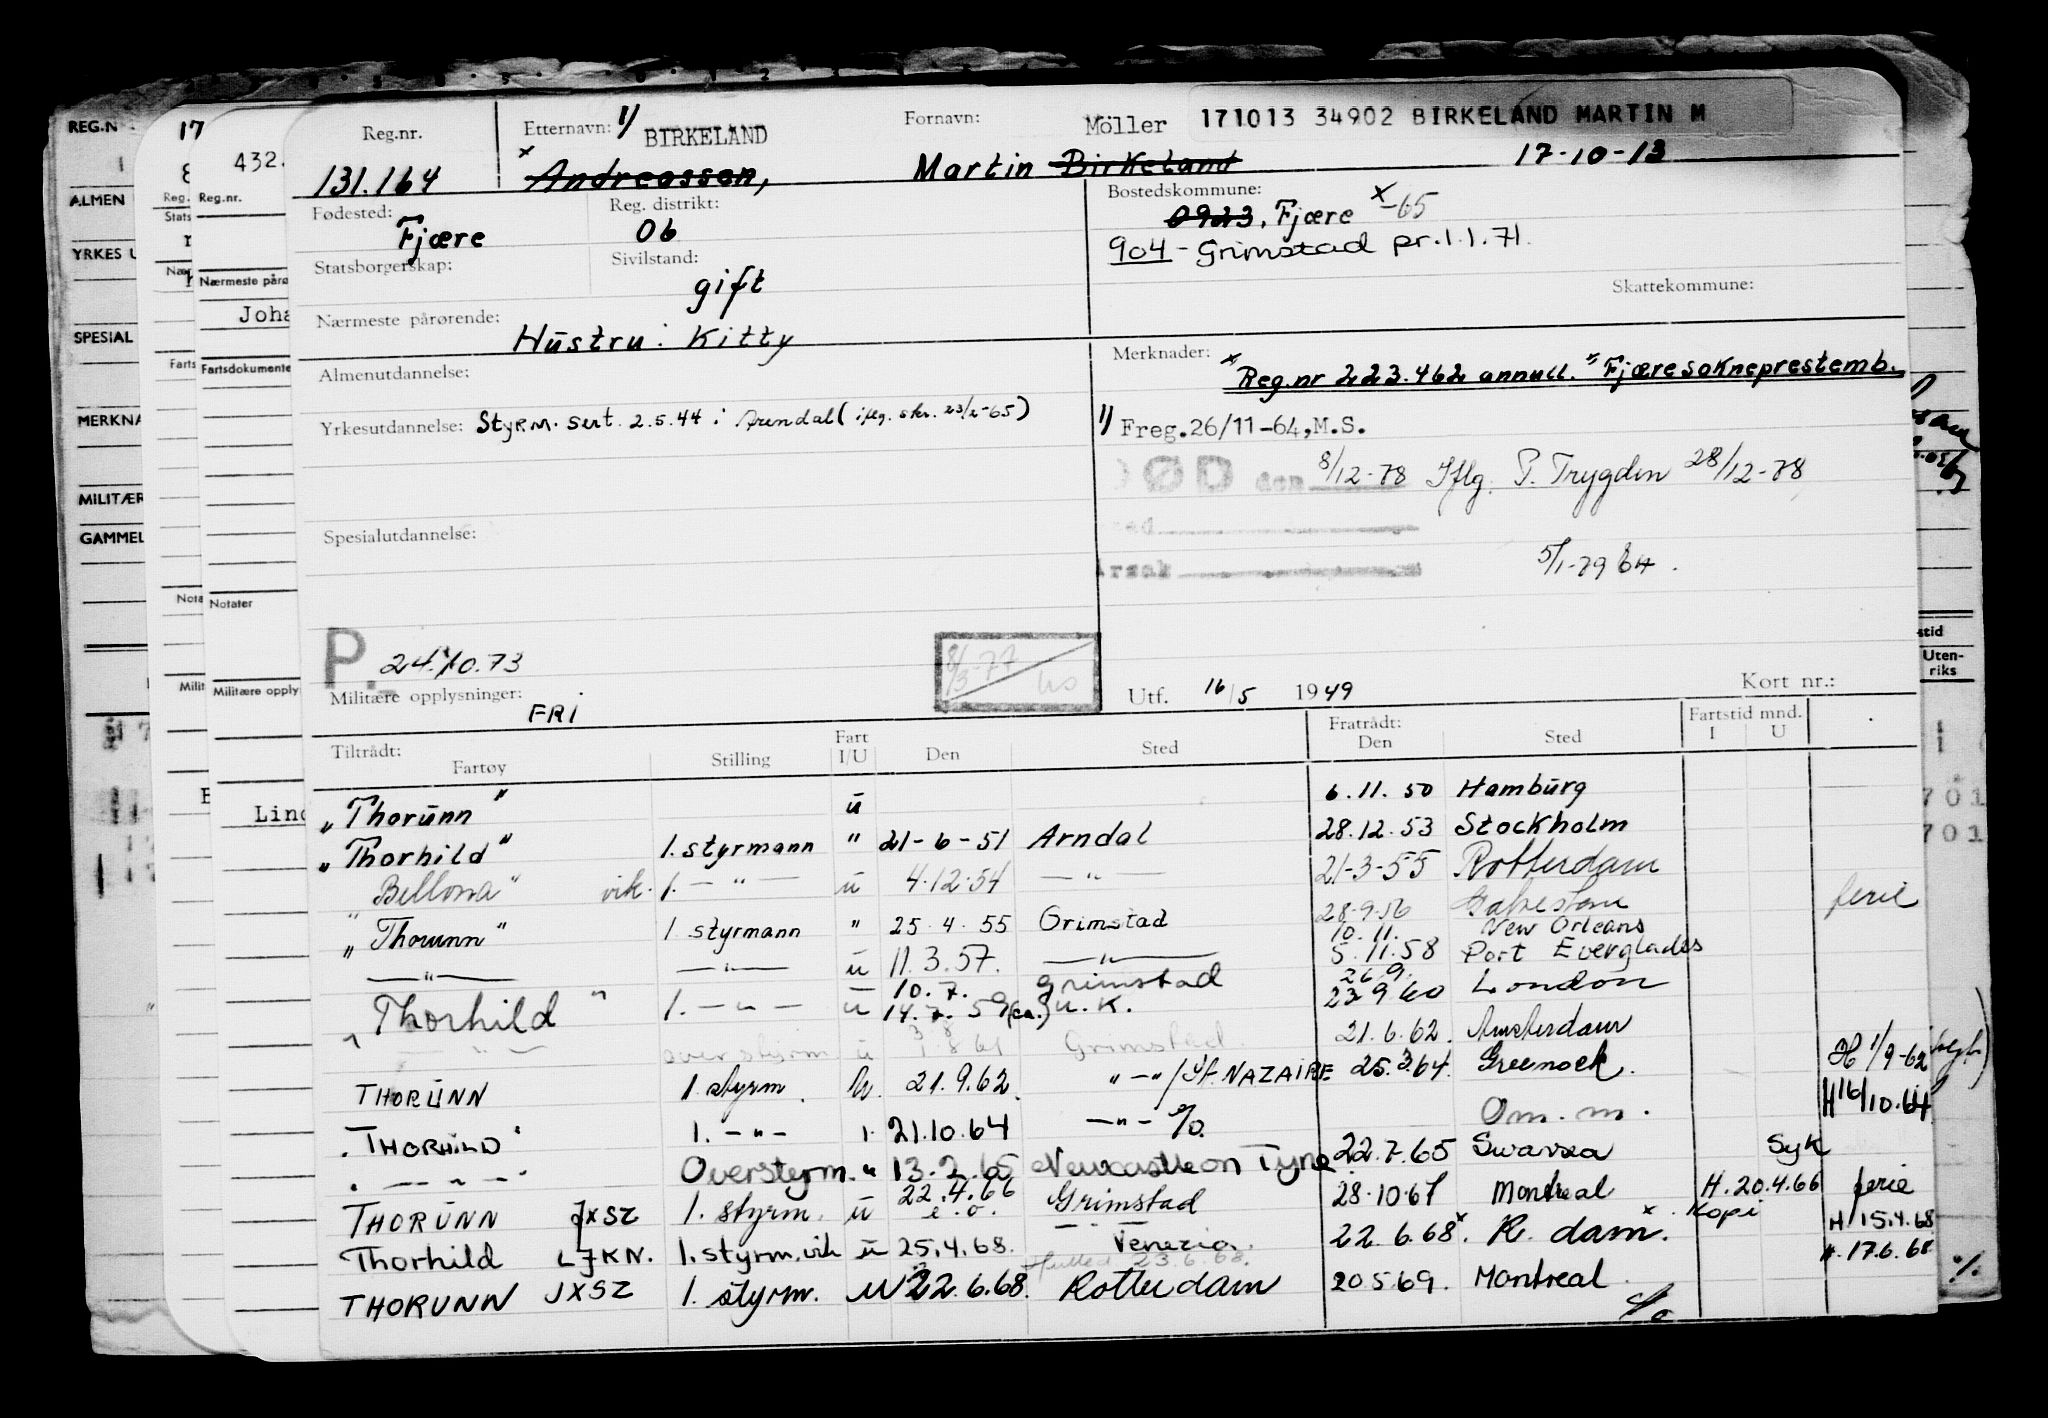 171013 34902 BIRKELAND MARTIN M
Reg.nr. Etternavn: 1/ BIRKELAND Fornavn: Möller
131.164 x Andreassen, Martin Birkeland 17-10-13
Fødested: Fjære Reg. distrikt: 06 Bostedskommune: 0923, Fjære x-65
904 - Grimstad pr. 1.1.71.
Statsborgerskap: Sivilstand: gift Skattekommune:
Nærmeste pårørende: Hustru: Kitty
Almenutdannelse: Merknader: x Reg.nr 223.462 annull. " Fjære sokneprestemb.
Yrkesutdannelse: Styrm. sert. 2.5.44 i Arendal (iflg. skr. 23/2-65) 1/ Freg. 26/11-64, M.S.
DØD den 8/12-78 Iflg. P. Trygden 28/12-78
Spesialutdannelse:
5/1-79
P. 24.10.73 8/3-77
Militære opplysninger: FRI Utf. 16/5 1949 Kort nr.:
Tiltrådt: Fartøy Stilling Fart I/U Den Sted Fratrådt: Den Sted Fartstid mnd. I U
"Thorunn" u 6.11.50 Hamburg
"Thorhild" 1. styrmann " 21-6-51 Arndal 28.12.53 Stockholm
"Bellona" vik. 1. — " — u 4.12.54 — " — 21-3-55 Rotterdam
"Thorunn" 1. styrmann " 25.4.55 Grimstad 28.9.56 Galveston ferie
— " — — " — u 11.3.57. — " — 10.11. New Orleans
5.11.58 Port Everglades
"Thorhild" 1. — " — u 10.7. Grimstad 26.9.
14.7.59 (ca.) U.K. 23.9.60 London
— " — overstyrm u 8.61 Grimstad. 21.6.62. Amsterdam
THORUNN 1 styrm. u. 21.9.62. " — " / St. NAZAIRE 25.3.64. Greenock. H 1/9-62
"THORHILD" 1. — " — 1. 21.10.64 — " — Om. m. H 16/10.64
" — " — " Overstyrm. " 13.2.65 Newcastle on Tyne 22.7.65 Swansea Syk
THORUNN JXSZ 1. styrm. u 22.4.66 Grimstad 28.10.67 Montreal H.20.4.66 ferie
Kopi H 15.4.68
Thorhild LJKN. 1. styrm. vik u 25.4.68. Venezia. 22.6.68x. R. dam x. H. 17.6.68
23.6.68.
THORUNN JXSZ 1. styrm. u 22.6.68. Rotterdam 20.5.69. Montreal
REG.N
ALMEN
YRKES U
SPESIAL
MERKNA
MILITÆR
GAMMEL
17
432.
Reg.
Reg.nr.
Stats
Nær
Nærmeste påro
Joha
Farts
Fartsdokumente
Nota
Notater
Milit
Militære opply
Lind
stid
Uten-
riks
701
701